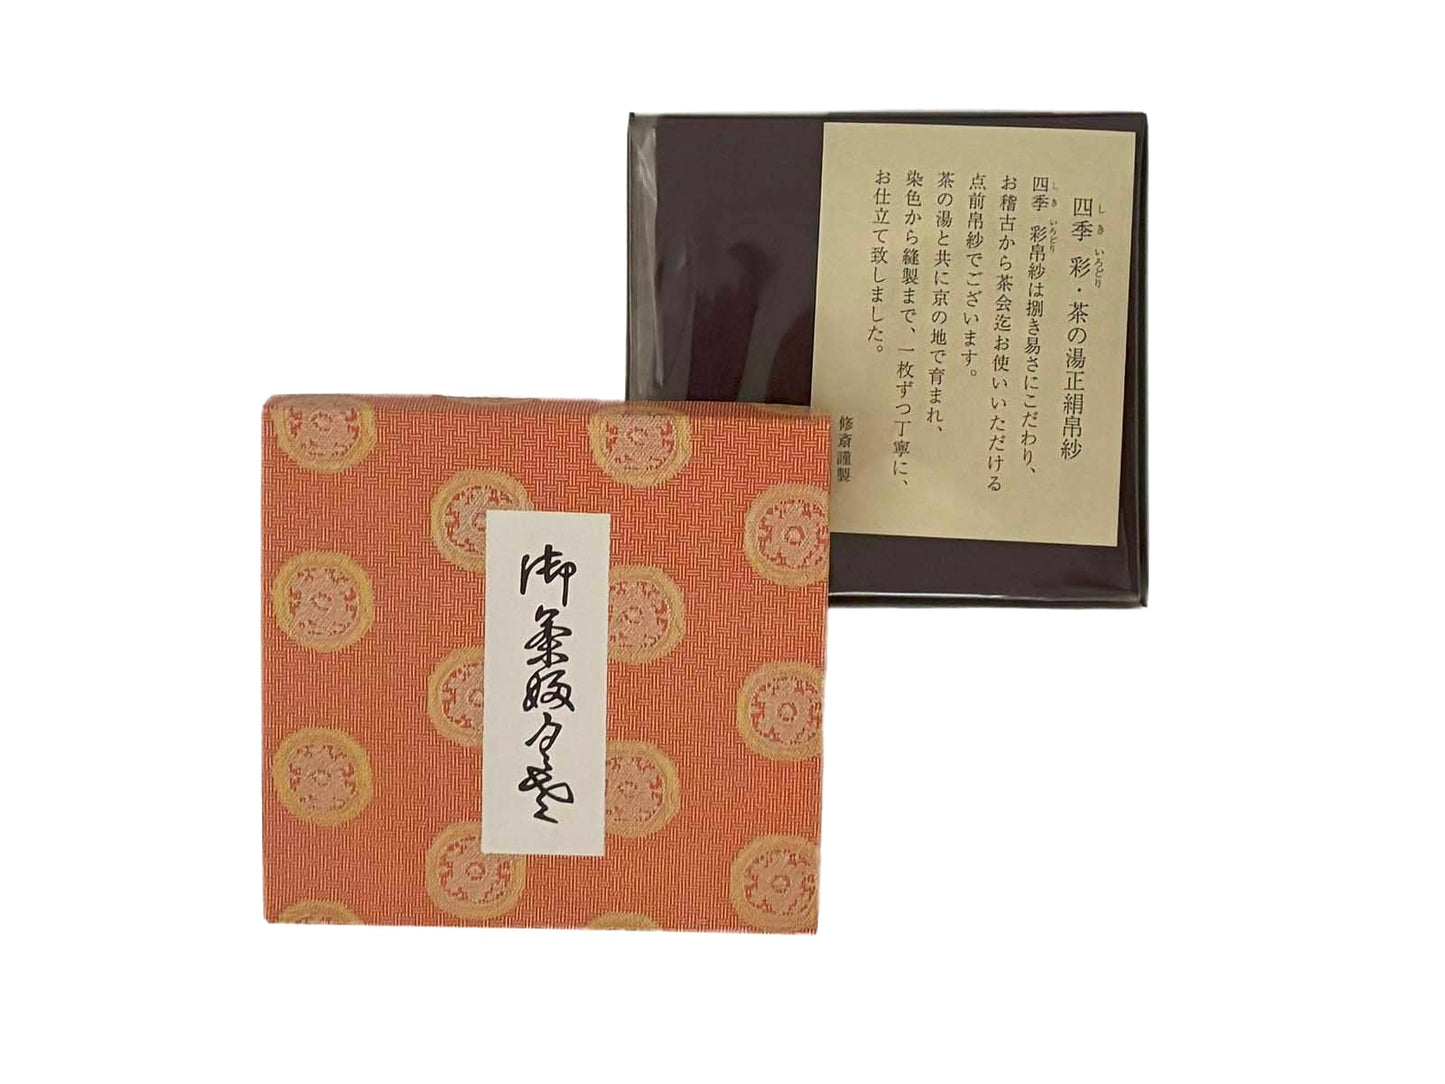 四季 彩・茶の湯正絹帛紗
しき いろどり
四季 彩帛紗は捌き易さにこだわり、
しき いろどり
お稽古から茶会迄お使いいただける
点前帛紗でございます。
茶の湯と共に京の地で育まれ、
染色から縫製まで、一枚ずつ丁寧に、
お仕立て致しました。
修斎謹製
御茶